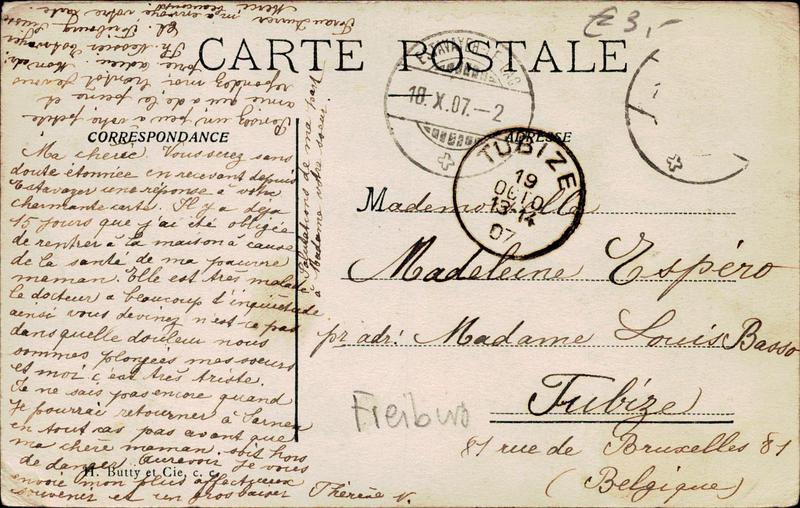 CARTE POSTALE
CORRESPONDANCE
ADRESSE
Ma chérie Vous serez sans
doute étonnée en recevant depuis
Estavayer une réponse à votre
charmante carte. Il y a déjà
15 jours que j'ai été obligée
de rentrer à la maison à cause
de la santé de ma pauvre
maman. Elle est très malade
le docteur a beaucoup d'inquiétude
ainsi vous devinez n'est-ce pas
dans quelle douleur nous
sommes plongées mes soeurs
et moi c'est très triste.
Je ne sais pas encore quand
je pourrai retourner à Sarnen
en tout cas pas avant que
ma chère maman soit hors
de danger. Aurevoir je vous
envoie mon plus affectueux
souvenir et un gros baiser
Thérèse V.
H. Butty et Cie, c. c.
Pensez un peu à votre petite
amie qui a de la peine et
répondez moi bientôt
Estavayer
Fribourg Suisse
Merci
m'a envoyé votre carte.
Salutations de ma part
à Madame votre soeur.
Mademoiselle
Madeleine Espéro
pr adr: Madame Louis Basso
Tubize
81 rue de Bruxelles 81
(Belgique)
Freiburg
€ 3,-
18. X. 07. – 2
TUBIZE
19
OCTO
13-14
07